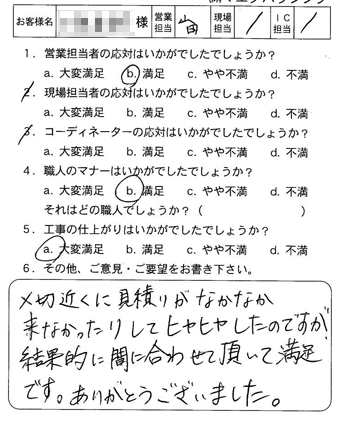 お客様名 様 営業担当 現場担当 / IC担当 /
1. 営業担当者の応対はいかがでしたでしょうか？
a. 大変満足 b. 満足 c. やや不満 d. 不満
2. 現場担当者の応対はいかがでしたでしょうか？
a. 大変満足 b. 満足 c. やや不満 d. 不満
3. コーディネーターの応対はいかがでしたでしょうか？
a. 大変満足 b. 満足 c. やや不満 d. 不満
4. 職人のマナーはいかがでしたでしょうか？
a. 大変満足 b. 満足 c. やや不満 d. 不満
それはどの職人でしょうか？（ ）
5. 工事の仕上がりはいかがでしたでしょうか？
a. 大変満足 b. 満足 c. やや不満 d. 不満
6. その他、ご意見・ご要望をお書き下さい。
〆切近くに見積りがなかなか
来なかったりしてヒヤヒヤしたのですが
結果的に間に合わせて頂いて満足
です。ありがとうございました。